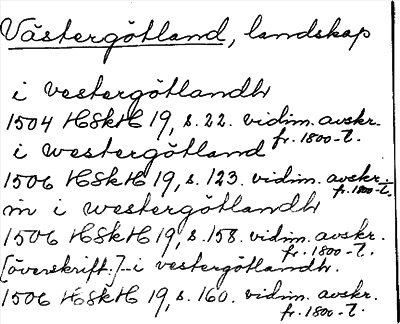 Västergötland, landskap
i vestergötlandh
1504 HSkH 19, s. 22. vidim. avskr.
fr. 1800-t.
i westergötland
1506 HSkH 19, s. 123. vidim. avskr.
fr. 1800-t.
in i westergötlandh
1506 HSkH 19, s. 158. vidim. avskr.
fr. 1800-t.
[överskrift:] - i vestergötlandh.
1506 HSkH 19, s. 160. vidim. avskr.
fr. 1800-t.